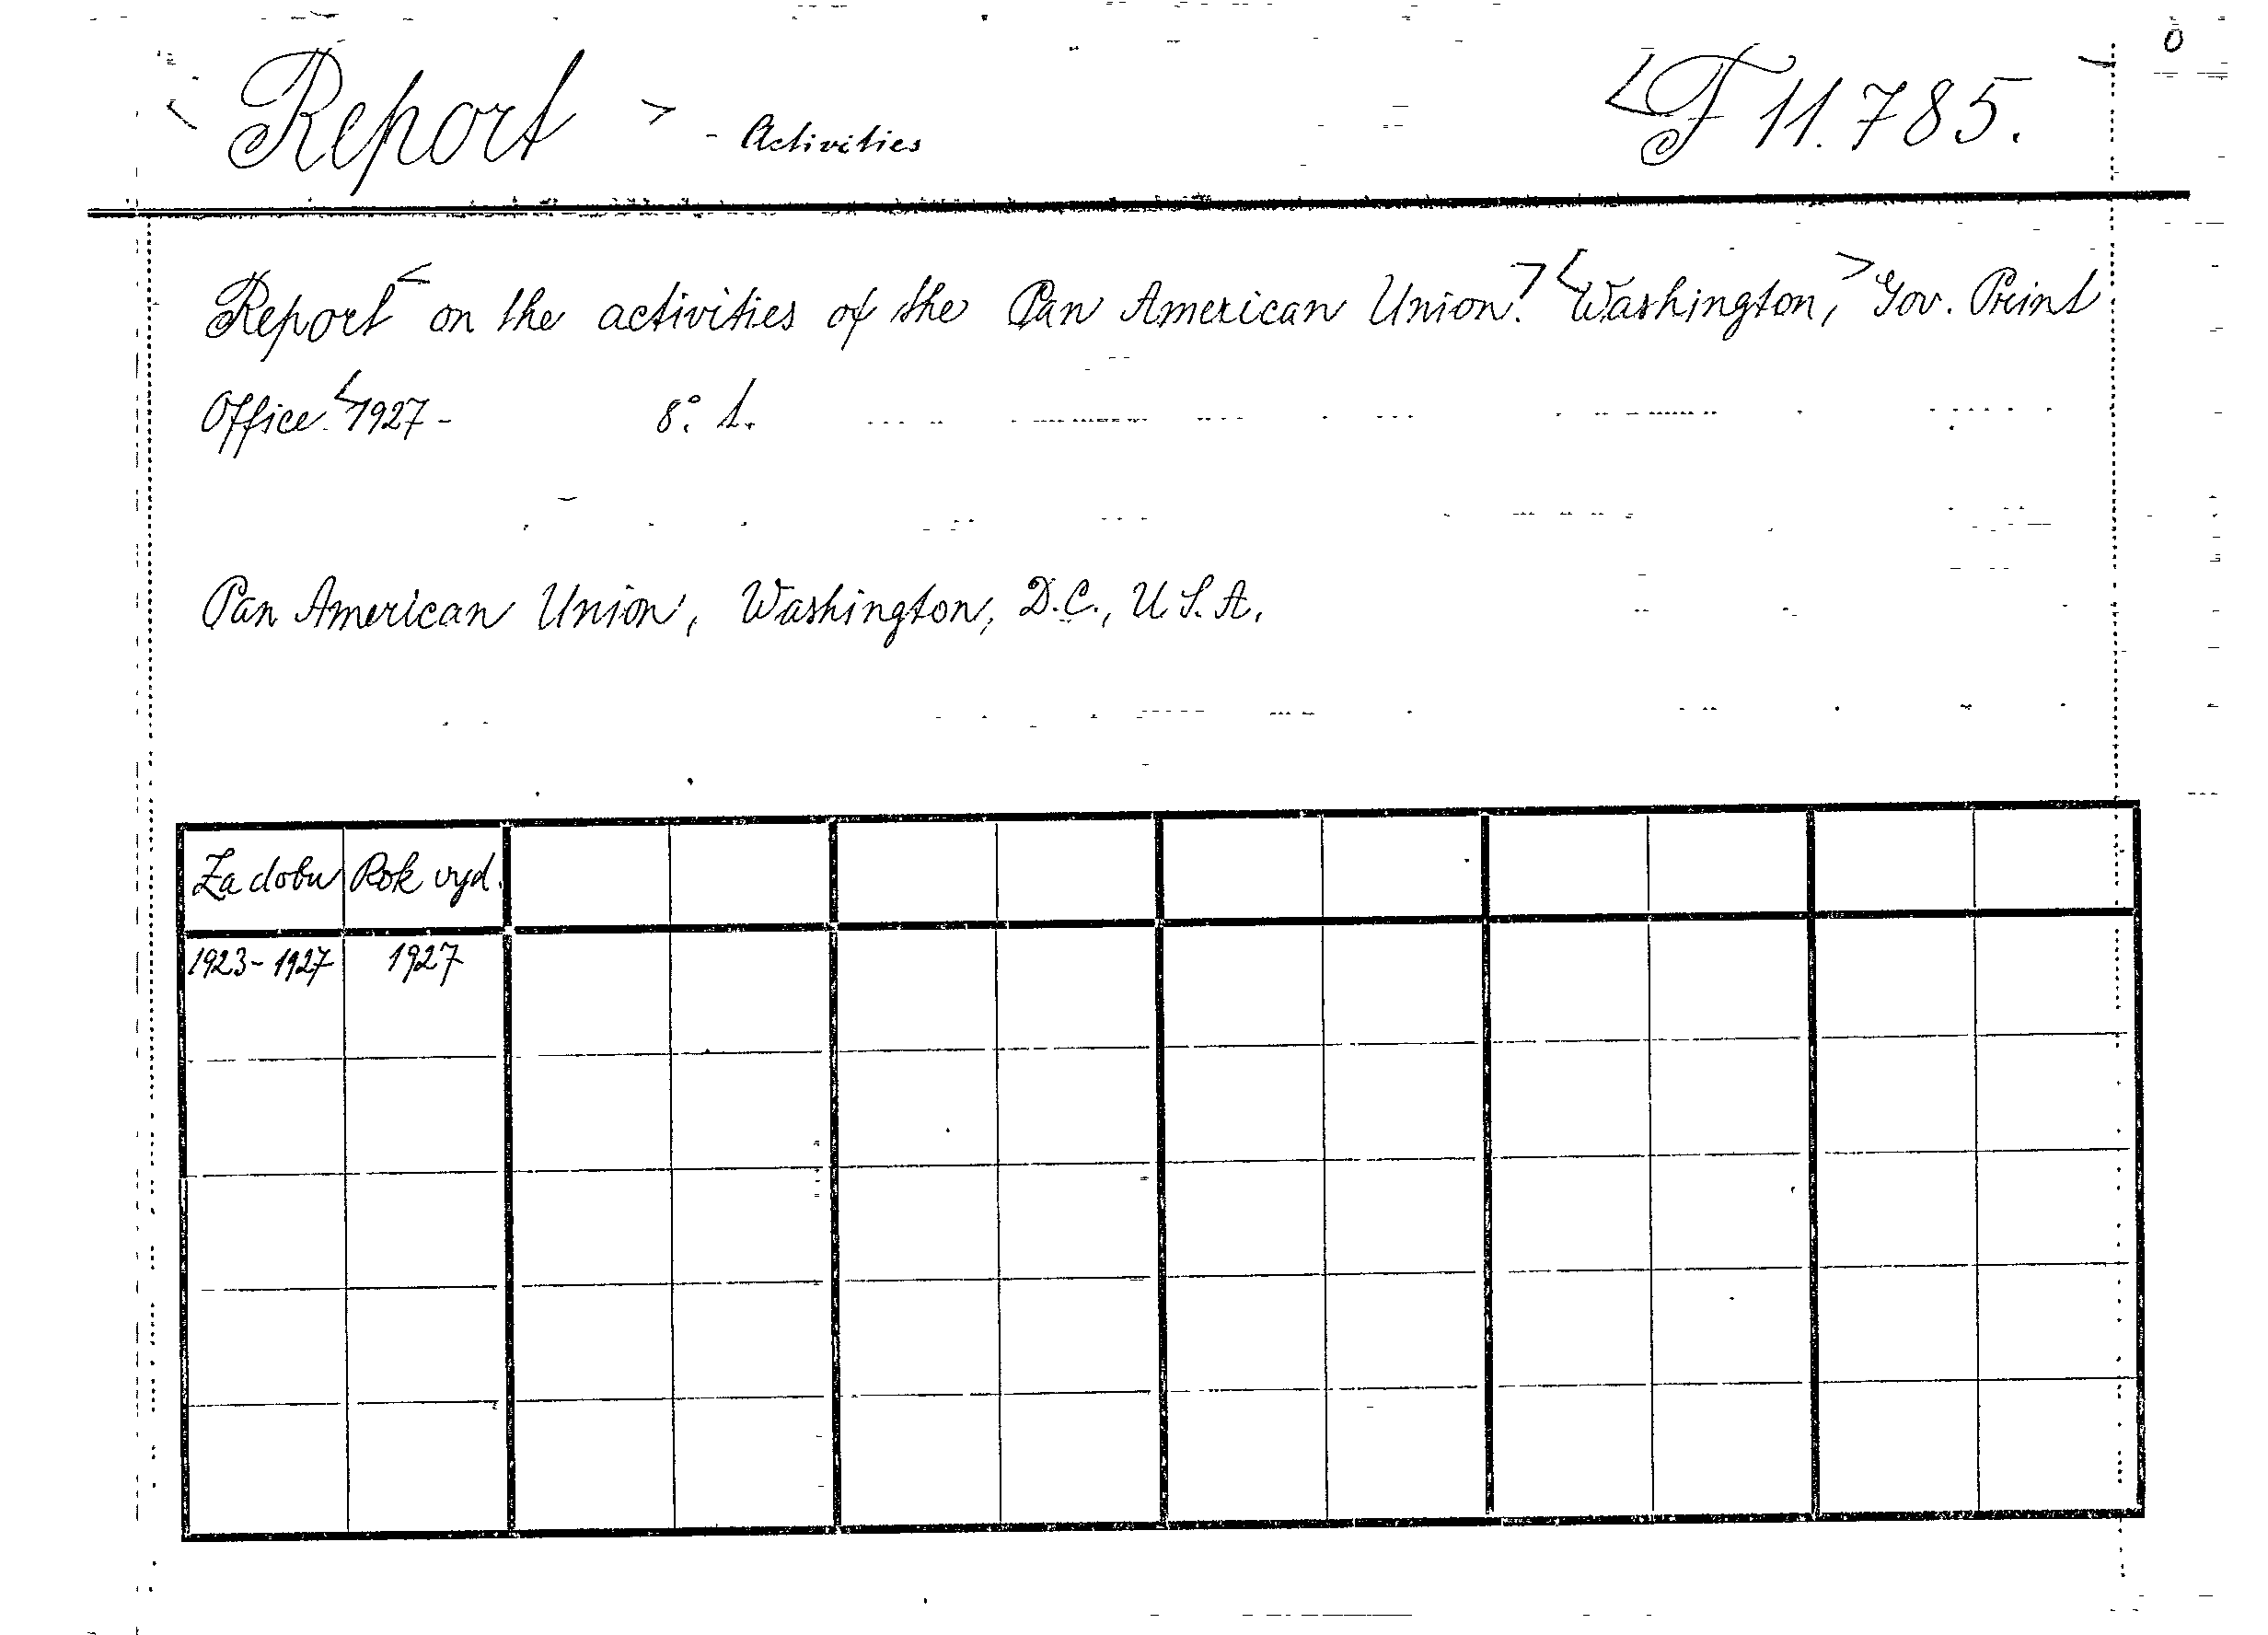 Report - Activities F 11.785.
Report on the activities of the Pan American Union. Washington, Gov. Print
Office. 1927- 8°. s.
Pan American Union, Washington, D.C., U.S.A.
Za dobu Rok vyd.
1923-1927 1927